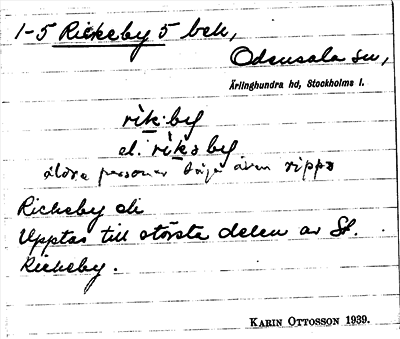 1-5 Rickeby 5 bek,
Odensala sn,
Ärlinghundra hd, Stockholms l.
rik:by
el. riksby
äldre personer även
Rickeby är
Upptas till största delen av St.
Rickeby.
KARIN OTTOSSON 1939.